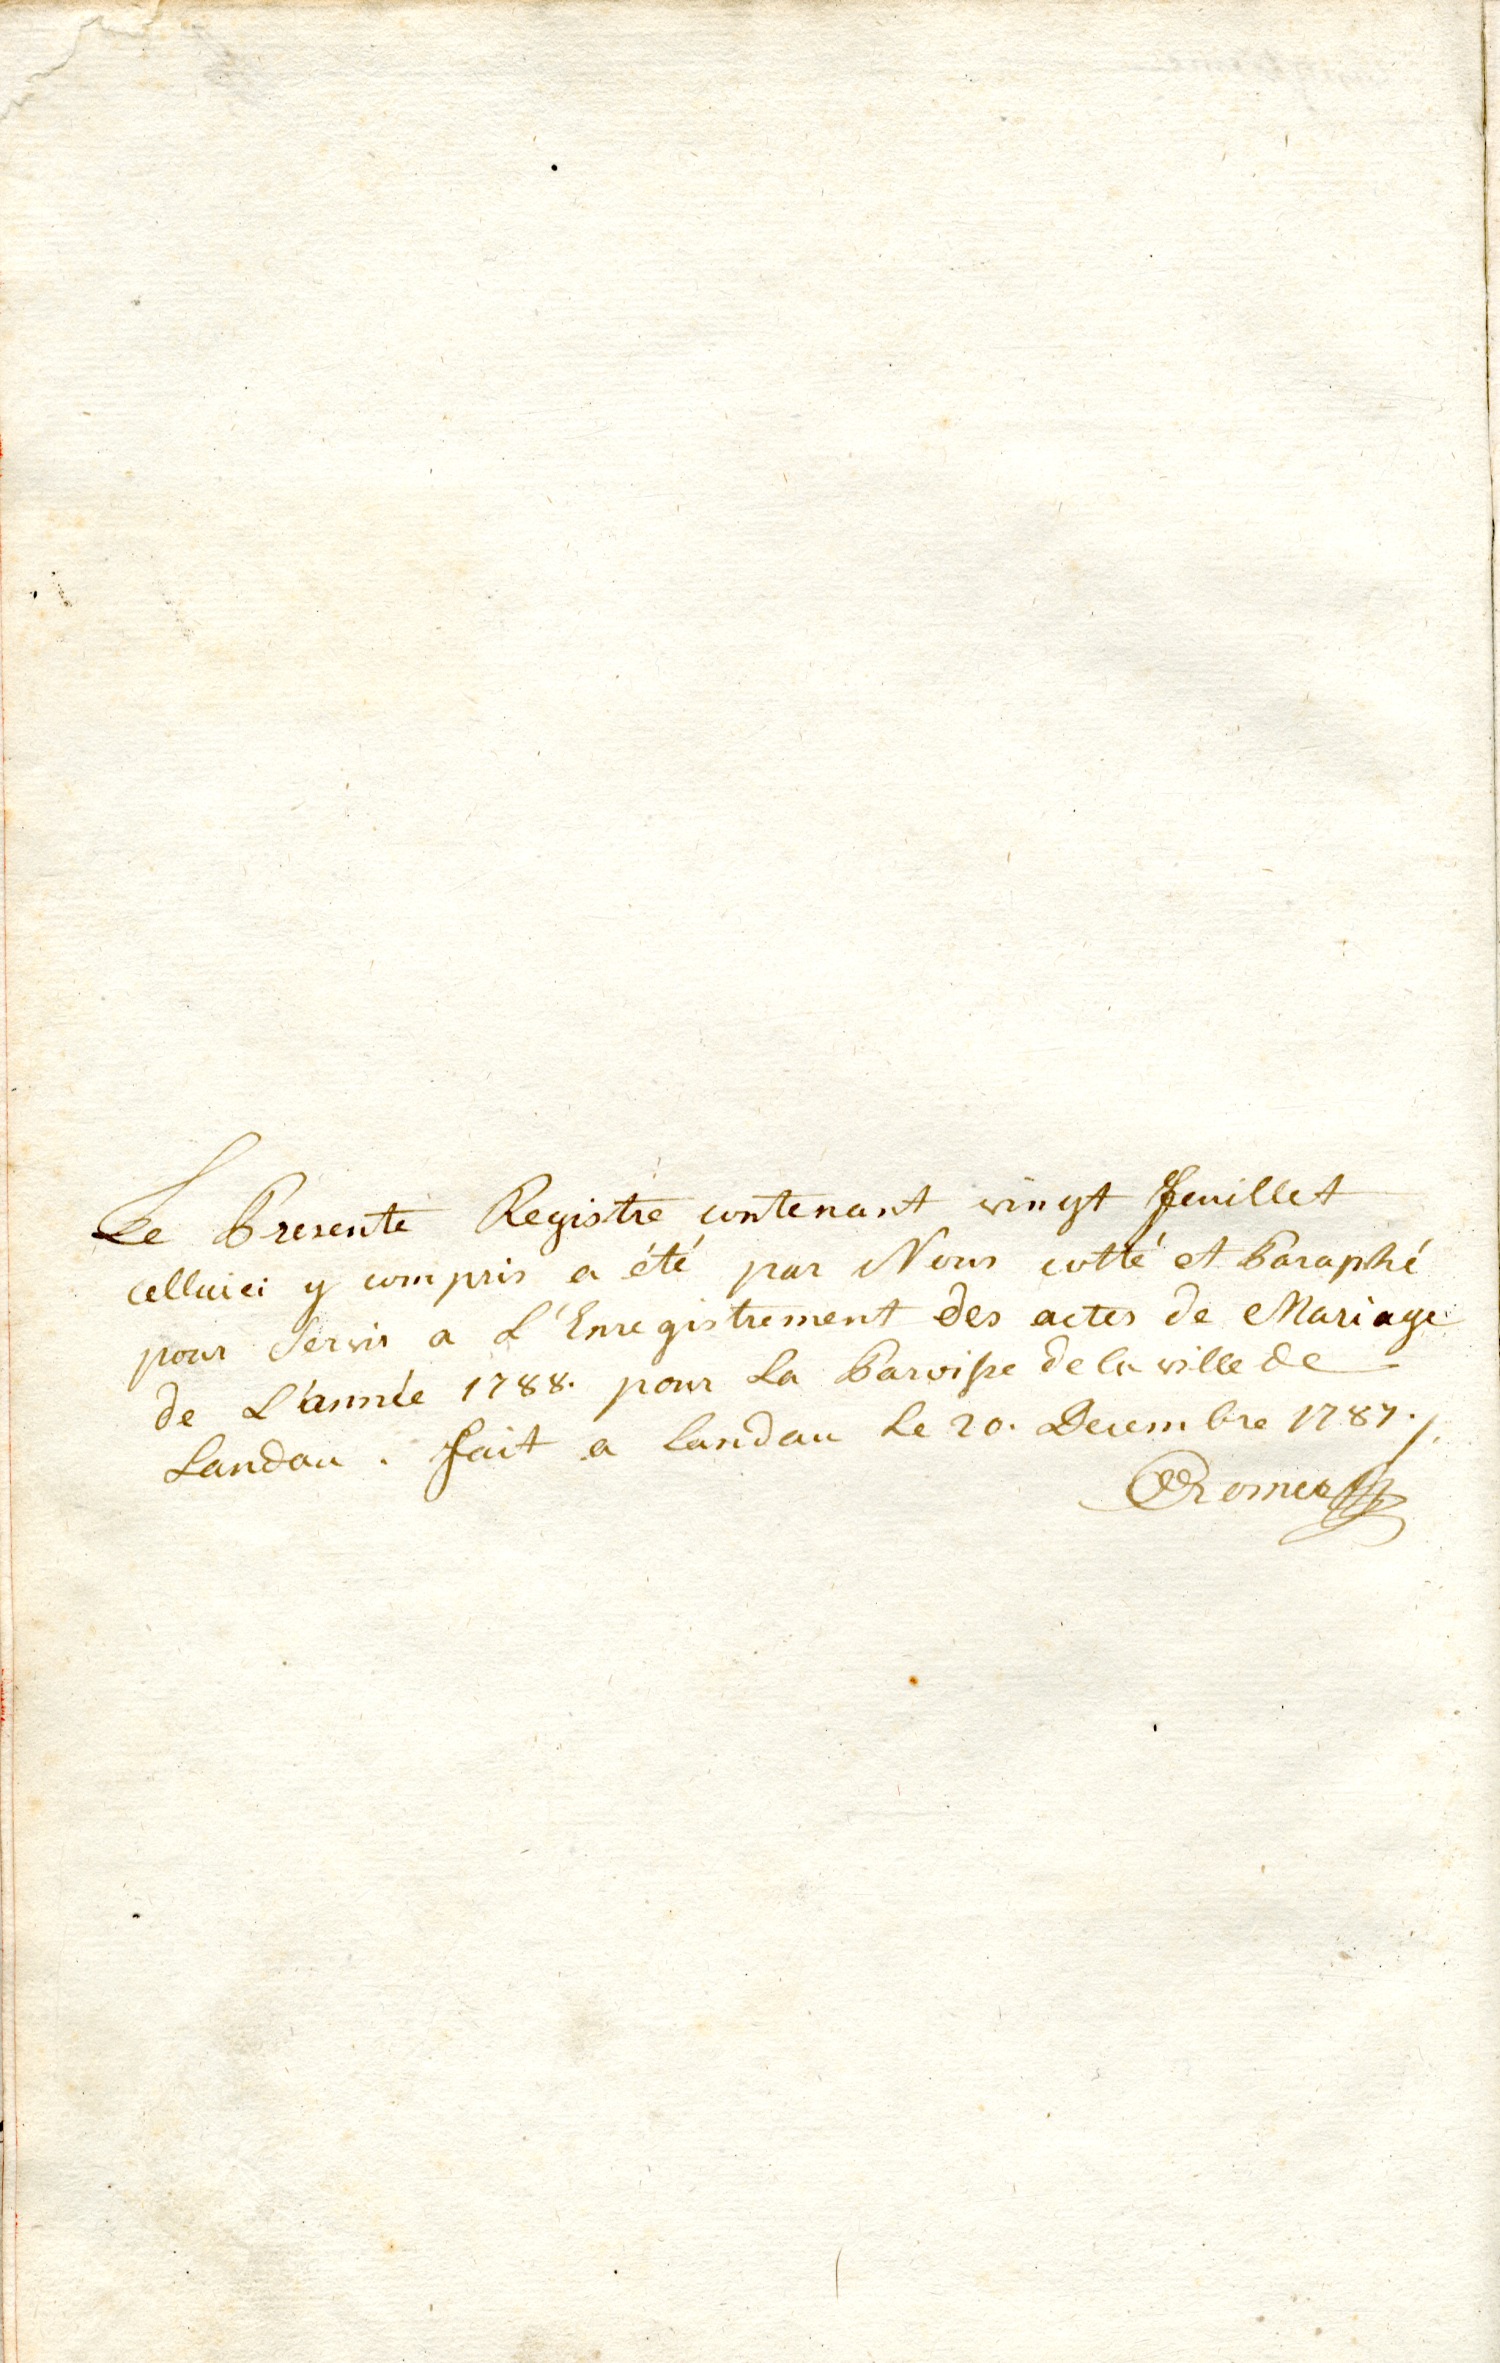 Le Presente Registre contenant vingt feuillet
celluici y compris a été par Nous cotté et Paraphé
pour Servir a L'Enregistrement des actes de Mariage
de L'année 1788. pour La Paroisse de la ville de
Landau. fait a Landau Le 20. Decembre 1787.